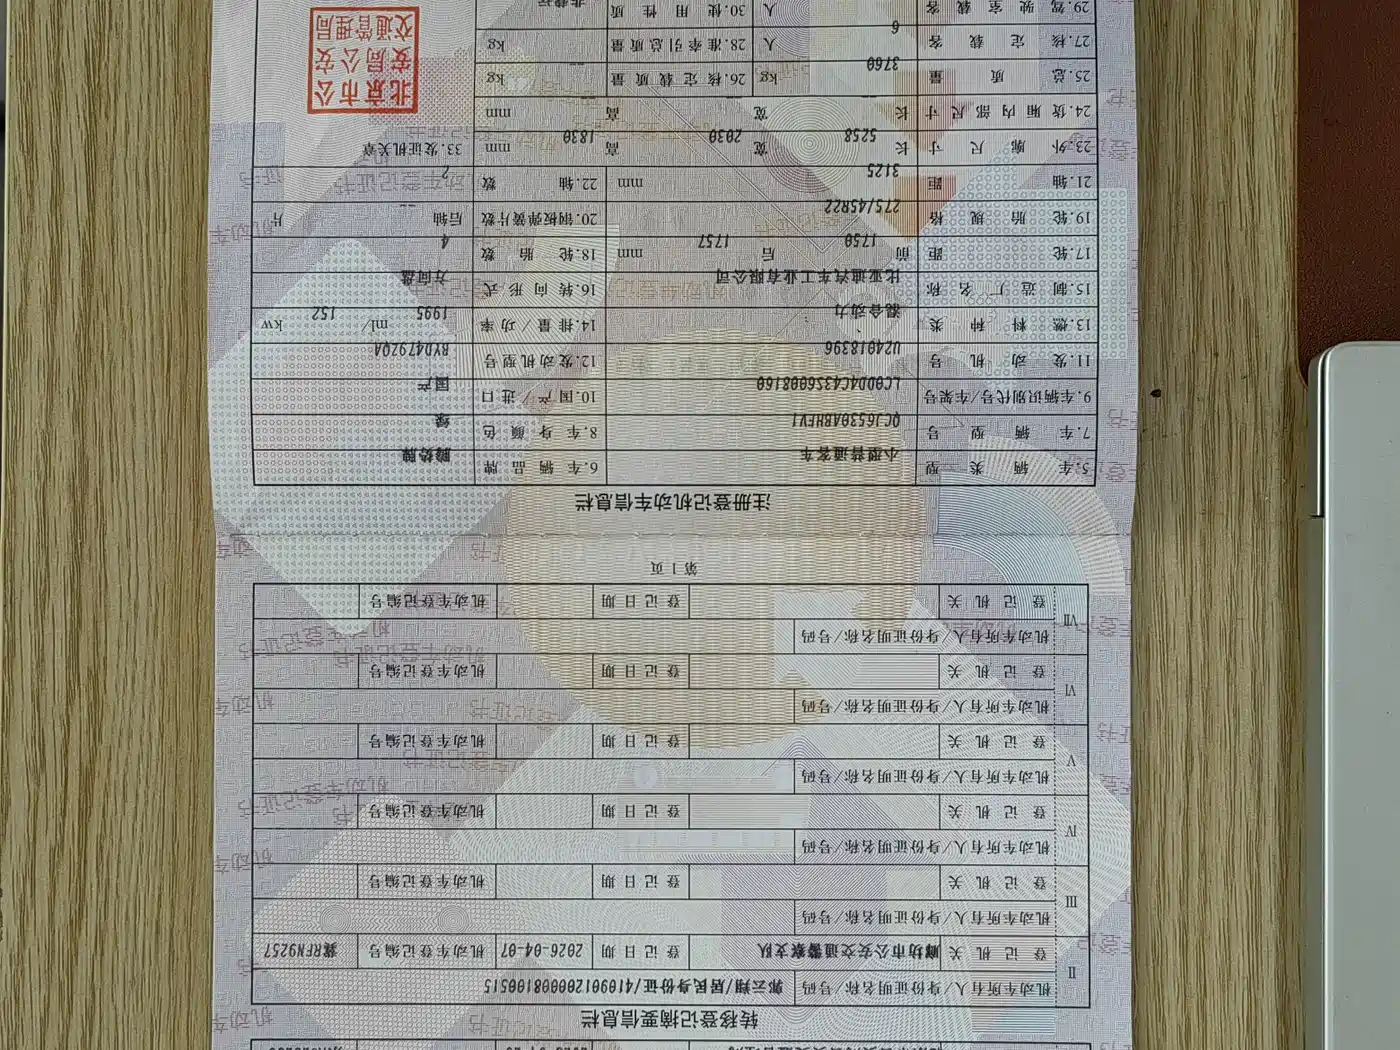 转移登记摘要信息栏
II 机动车所有人/身份证明名称/号码 郭云翔/居民身份证/410901200008100515
登记机关 廊坊市公安交通警察支队 登记日期 2026-04-07 机动车登记编号 冀RFN9257
III 机动车所有人/身份证明名称/号码
登记机关 登记日期 机动车登记编号
IV 机动车所有人/身份证明名称/号码
登记机关 登记日期 机动车登记编号
V 机动车所有人/身份证明名称/号码
登记机关 登记日期 机动车登记编号
VI 机动车所有人/身份证明名称/号码
登记机关 登记日期 机动车登记编号
VII 机动车所有人/身份证明名称/号码
登记机关 登记日期 机动车登记编号
第 1 页
注册登记机动车信息栏
5.车辆类型 小型普通客车 6.车辆品牌 腾势牌
7.车辆型号 QCJ6530ABHEV1 8.车身颜色 绿
9.车辆识别代号/车架号 LC0DD4C43S6008160 10.国产/进口 国产
11.发动机号 UZ4018396 12.发动机型号 BYD479ZQA
13.燃料种类 混合动力 14.排量/功率 1995 ml/ 152 kw
15.制造厂名称 比亚迪汽车工业有限公司 16.转向形式 方向盘
17.轮距 前 1750 后 1757 mm 18.轮胎数 4
19.轮胎规格 275/45R22 20.钢板弹簧片数 后轴 -- 片
21.轴距 3125 mm 22.轴数 2
23.外廓尺寸 长 5258 宽 2030 高 1830 mm 33.发证机关章
24.货厢内部尺寸 长 -- 宽 -- 高 -- mm
25.总质量 3760 kg 26.核定载质量 -- kg
27.核定载客 6 人 28.准牵引总质量 -- kg
29.驾驶室载客 人 30.使用性质
北京市公
安局公安
交通管理局